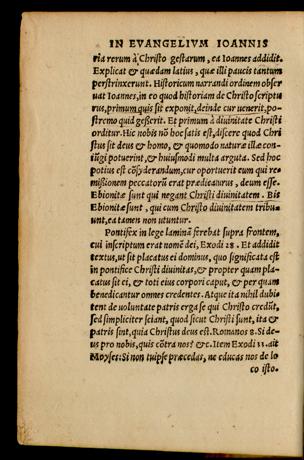 IN EVANGELIVM IOANNIS
ria rerum à Christo gestarum, ea Ioannes addidit.
Explicat & quædam latius, quæ illi paucis tantum
perstrinxerunt. Historicum narrandi ordinem obser
uat Ioannes, in eo quod historiam de Christo scriptu
rus, primum quis sit exponit, deinde cur uenerit, po-
stremo quid gesserit. Et primum à diuinitate Christi
orditur. Hic nobis nō hoc satis est, discere quod Chri
stus sit deus & homo, & quomodo naturæ illæ con-
iūgi potuerint, & huiusmodi multa arguta. Sed hoc
potius est cōsyderandum, cur oportuerit eum qui re-
mißionem peccatorū erat prædicaturus, deum esse.
Ebionitæ sunt qui negant Christi diuinitatem. Bis
Ebionitæ sunt, qui cum Christo diuinitatem tribu-
unt, ea tamen non utuntur.
Pontifex in lege laminā ferebat supra frontem,
cui inscriptum erat nomē dei, Exodi 28. Et addidit
textus, ut sit placatus ei dominus, quo significata est
in pontifice Christi diuinitas, & propter quam pla-
catus sit ei, & toti eius corpori caput, & per quam
benedicantur omnes credentes. Atque ita nihil dubi-
tent de voluntate patris erga se qui Christo credūt,
sed simpliciter sciant, quod sicut Christi sunt, ita &
patris sint, quia Christus deus est. Romanos 8. Si de-
us pro nobis, quis cōtra nos? &c. Item Exodi 33. ait
Moyses: Si non tuipse præcedas, ne educas nos de lo
co isto.